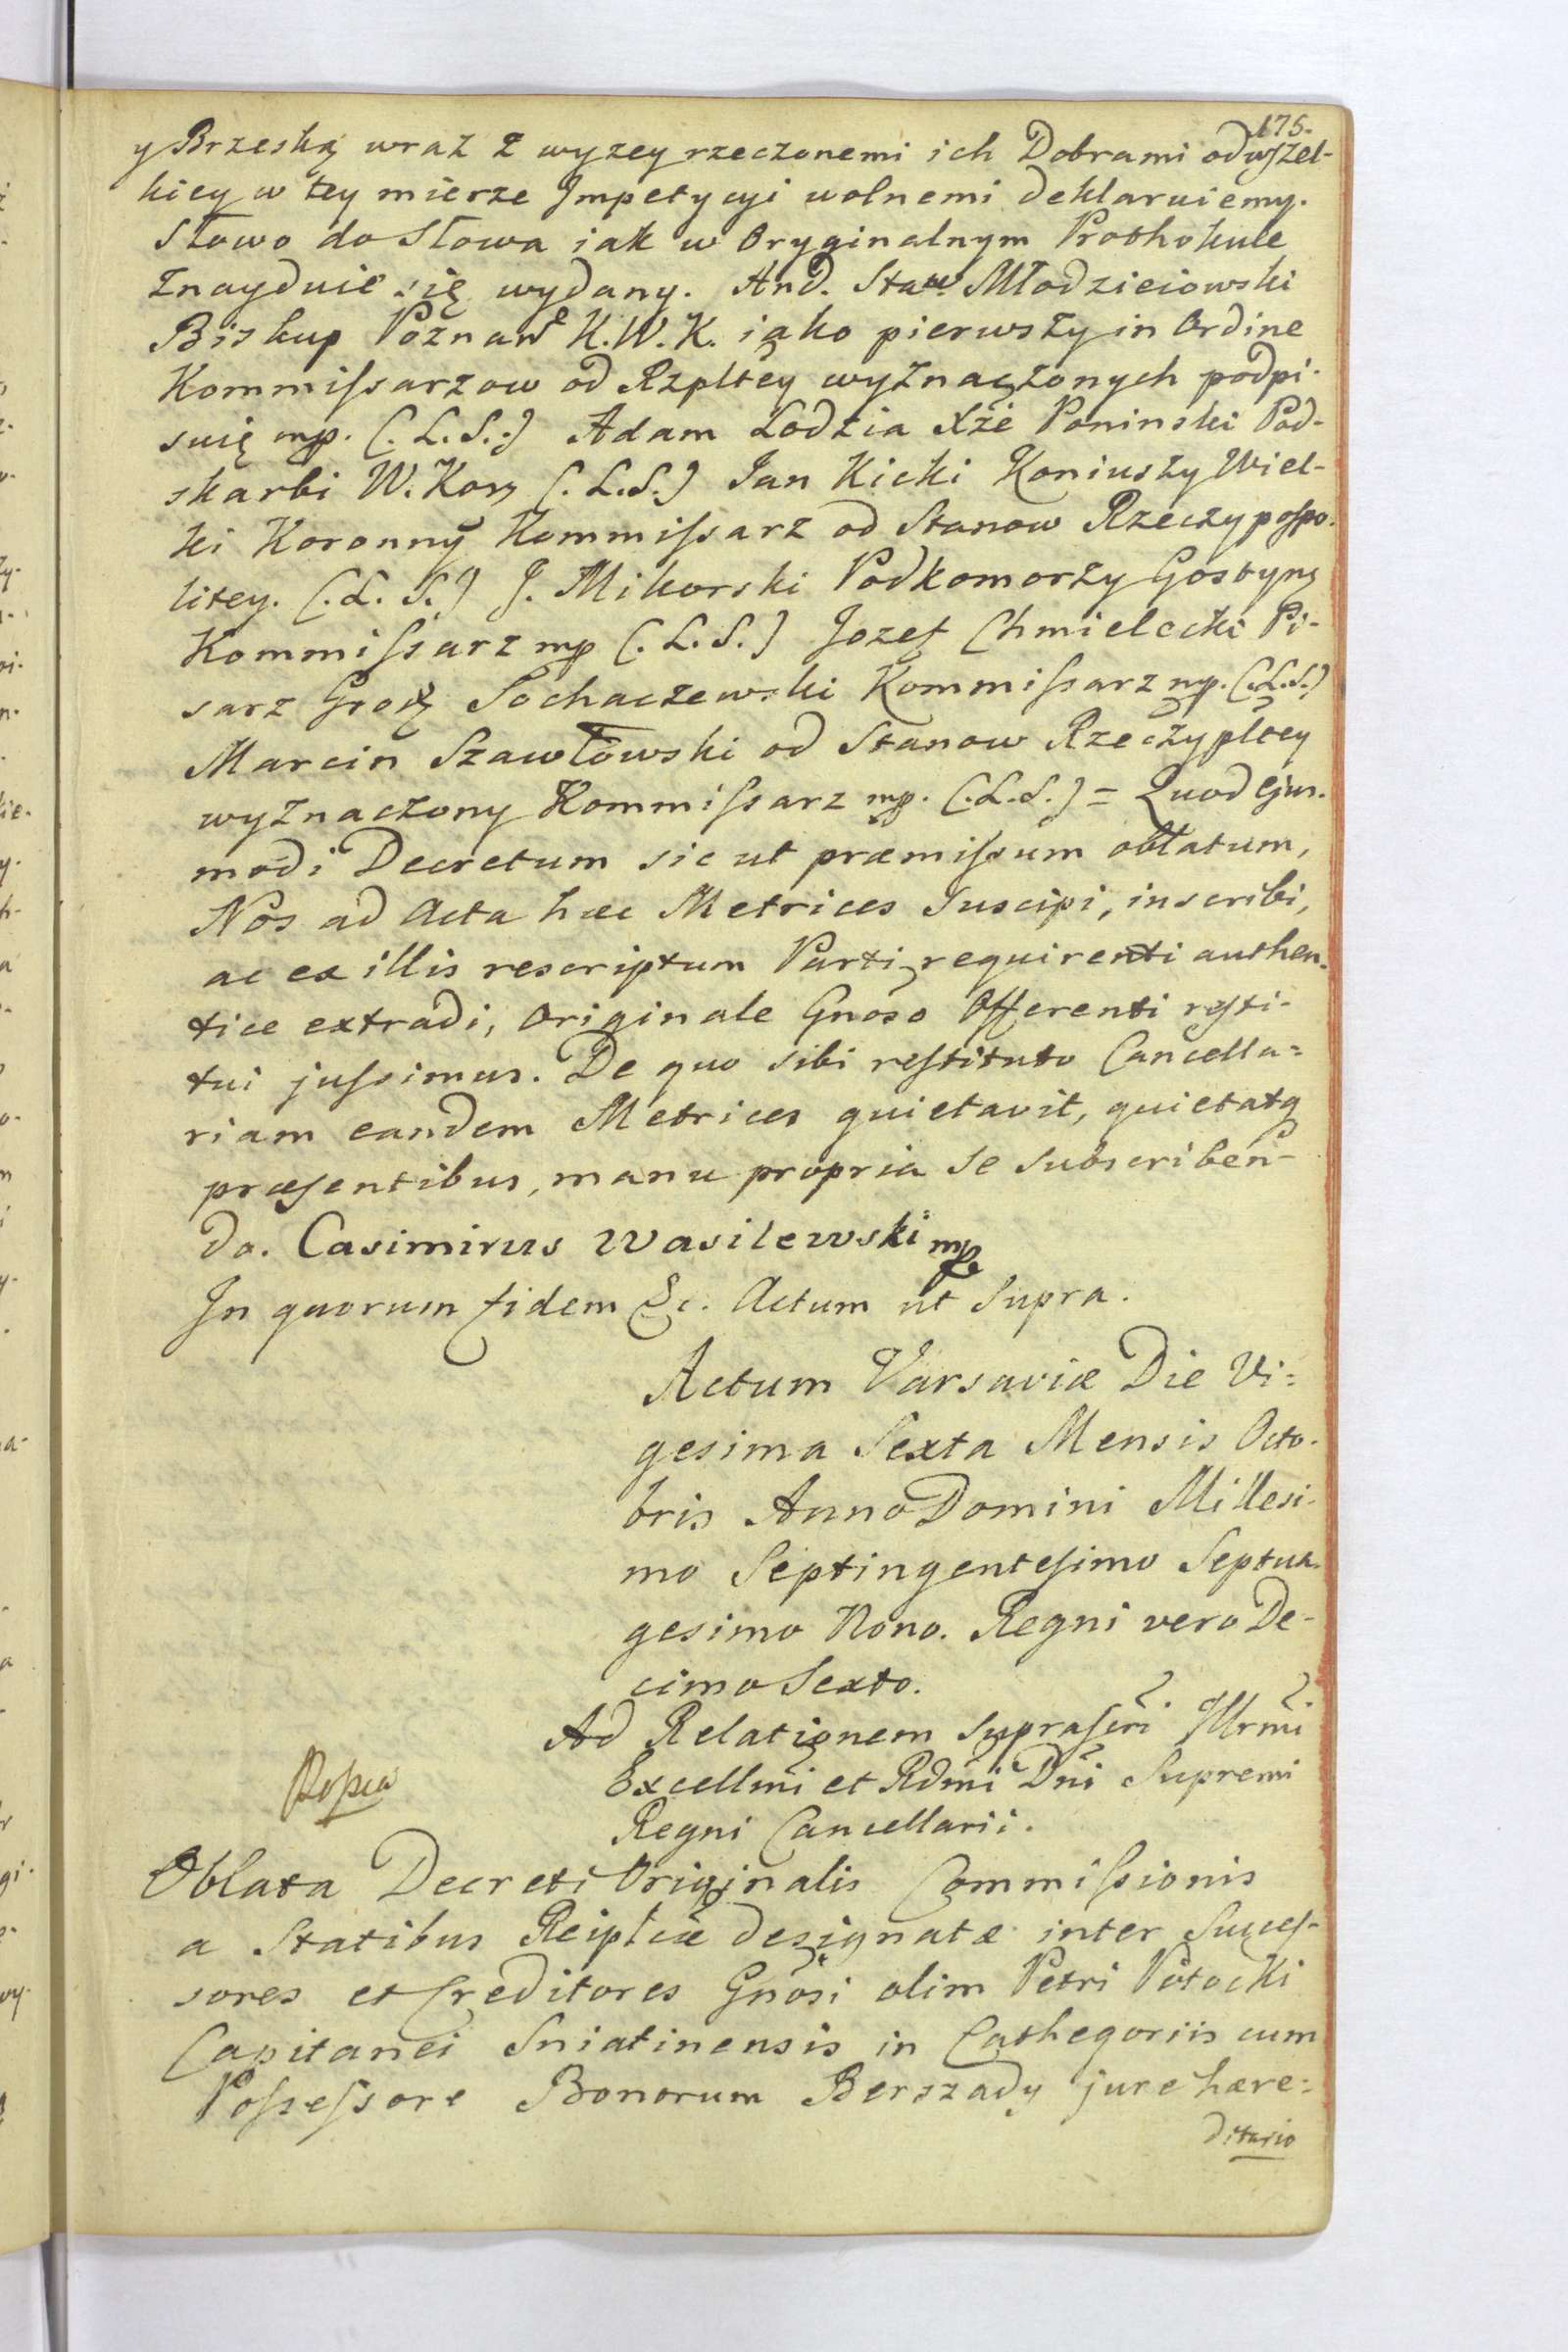 175.
y Brzeską wraz z wyzey rzeczonemi ich Dobrami od wszel-
kiey w tey mierze Jmpetycyi wolnemi deklaruiemy.
Słowo do Słowa iak w Oryginalnym Prothokule
Znayduie się wydany. And. Staw. Młodzieiowski
Biskup Poznań K.W.K. iako pierwszy in Ordine
Kommissarzow od Rzpltey wyznaczonych podpi-
suię mp. (.L.S.) Adam Łodzia Xże Poninski Pod-
skarbi W. Kor. (.L.S.) Jan Kicki Koniuszy Wiel-
ki Koronny Kommissarz od Stanow Rzeczypospo-
litey. (.L.S.) J. Mikorski Podkomorzy Gostyn.
Kommissarz mp (.L.S.) Jozef Chmielecki Pi-
sarz Grodz. Sochaczewski Kommissarz mp. (.L.S.)
Marcin Szawłowski od Stanow Rzeczypltey
wyznaczony Kommissarz mp. (.L.S.) = Quod ejus-
modi Decretum sic ut præmissum oblatum,
Nos ad Acta hæc Metrices Suscipi, inscribi,
ac ex illis rescriptum Parti requirenti authen-
tice extradi, Originale Gnoso Offerenti resti-
tui jussimus. De quo sibi restituto Cancella=
riam eandem Metrices quietavit, quietatq
præsentibus, manu propria se subscriben-
do. Casimirus Wasilewski mp
In quorum fidem &c. Actum ut Supra.
Actum Varsaviæ Die Vi=
gesima Sexta Mensis Octo-
bris Anno Domini Millesi-
mo Septingentesimo Septua-
gesimo Nono. Regni vero De-
cimo Sexto.
Ad Relationem suprascri Illrmi
Excellmi et Rdmi Dni Supremi
Regni Cancellarii.
Oblata Decreti Originalis Commissionis
a Statibus Reiplcæ designatæ inter Succes-
sores et Creditores Gnosi olim Petri Potocki
Capitanei Sniatinensis in Cathegoriis cum
Possessore Bonorum Berszady jure hære=
ditario